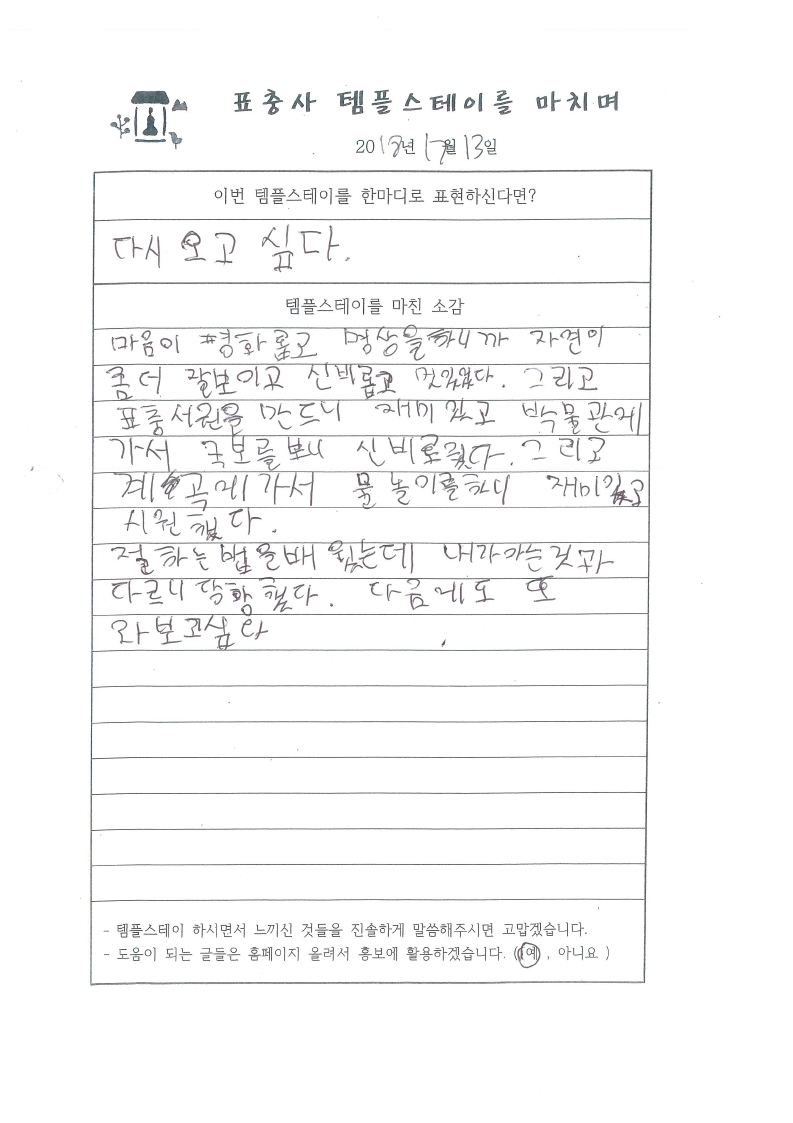 표충사 템플스테이를 마치며
2018년 7월 13일
이번 템플스테이를 한마디로 표현하신다면?
다시 오고 싶다.
템플스테이를 마친 소감
마음이 평화롭고 명상을하니까 자연이
좀더 잘보이고 신비롭고 멋있었다. 그리고
표충서원을 만드니 재미있고 박물관에
가서 국보를보니 신비로웠다. 그리고
계곡에가서 물놀이를하니 재미있고
시원했다.
절하는법을배웠는데 내가아는것과
다르니 당황했다. 다음에도 또
와보고싶다
- 템플스테이 하시면서 느끼신 것들을 진솔하게 말씀해주시면 고맙겠습니다.
- 도움이 되는 글들은 홈페이지 올려서 홍보에 활용하겠습니다. (예, 아니요 )